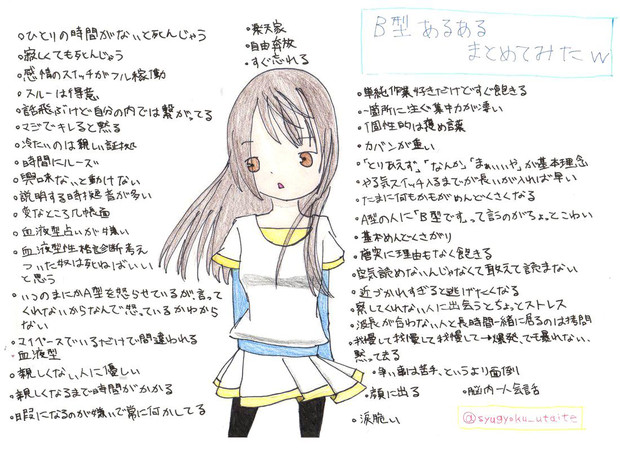 B型あるある
まとめてみたw
・ひとりの時間がないと死んじゃう
・寂しくても死んじゃう
・感情のスイッチがフル稼働
・スルーは得意
・話飛ぶけど自分の内では繋がってる
・マジでキレると黙る
・冷たいのは親しい証拠
・時間にルーズ
・興味ないと動けない
・説明する時擬音が多い
・変なところ几帳面
・血液型占いが嫌い
・血液型性格診断考え
ついた奴は死ねばいい
と思う
・いつのまにかA型を怒らせているが、言って
くれないからなんで怒っているかわから
ない
・マイペースでいるだけで間違われる
血液型
・親しくない人に優しい
・親しくなるまで時間がかかる
・暇になるのが嫌いで常に何かしてる
・楽天家
・自由奔放
・すぐ忘れる
・単純作業好きだけどすぐ飽きる
・一箇所に注ぐ集中力が凄い
・個性的は褒め言葉
・カバンが重い
・「とりあえず」、「なんか」「まぁいいや」が基本理念
・やる気スイッチ入るまでが長いが入れば早い
・たまに何もかもがめんどくさくなる
・A型の人に「B型です」って言うのがちょっとこわい
・基本めんどくさがり
・唐突に理由もなく飽きる
・空気読めないんじゃなくて敢えて読まない
・近づかれすぎると逃げたくなる
・察してくれない人に出会うとちょっとストレス
・波長が合わない人と長時間一緒に居るのは拷問
・我慢して我慢して我慢して→爆発、でも暴れない、
黙って去る
・争い事は苦手、というより面倒
・顔に出る
・脳内一人会話
・涙脆い
@syugyoku_utaite